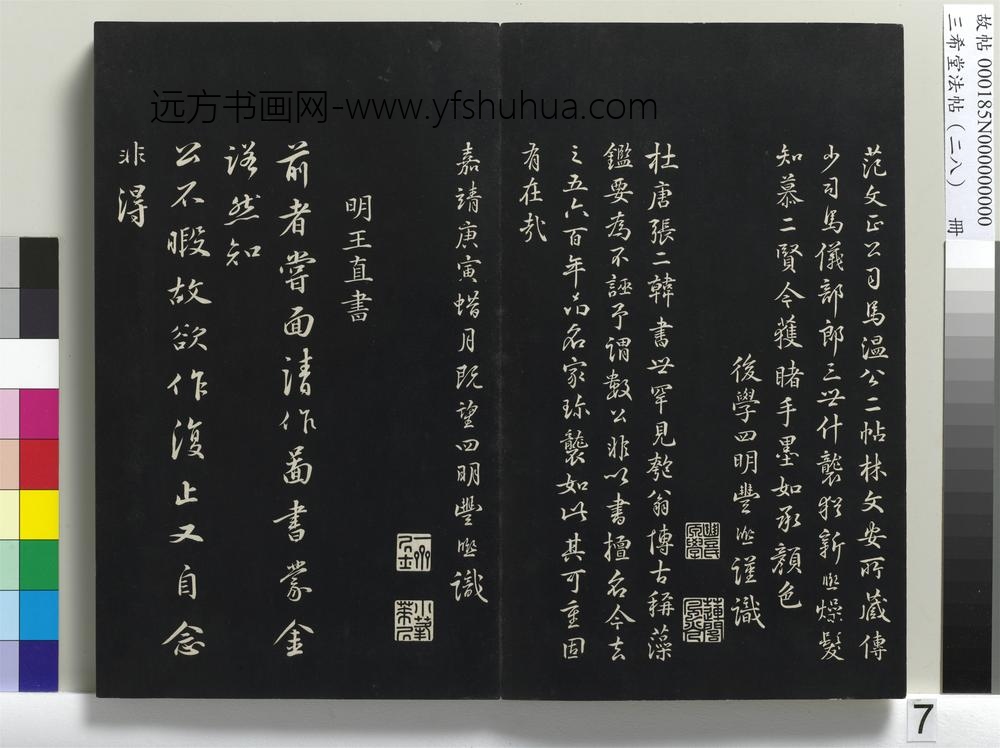 远方书画网-www.yfshuhua.com
故帖 000185N000000000
三希堂法帖(二八) 冊
范文正公司馬温公二帖林文安所藏傳
少司馬儀部郎三世什襲猶新熙燥髮
知慕二賢今獲睹手墨如承顏色
後學四明豐熙謹識
杜唐張二韓書世罕見匏翁博古稱藻
鑑要為不誣予謂數公非以書擅名今去
之五六百年品名家珍襲如此其可重固
有在哉
嘉靖庚寅蜡月既望四明豐熙識
明王直書
前者嘗面請作圖書蒙金
諾然知
公不暇故欲作復止又自念
非得
7